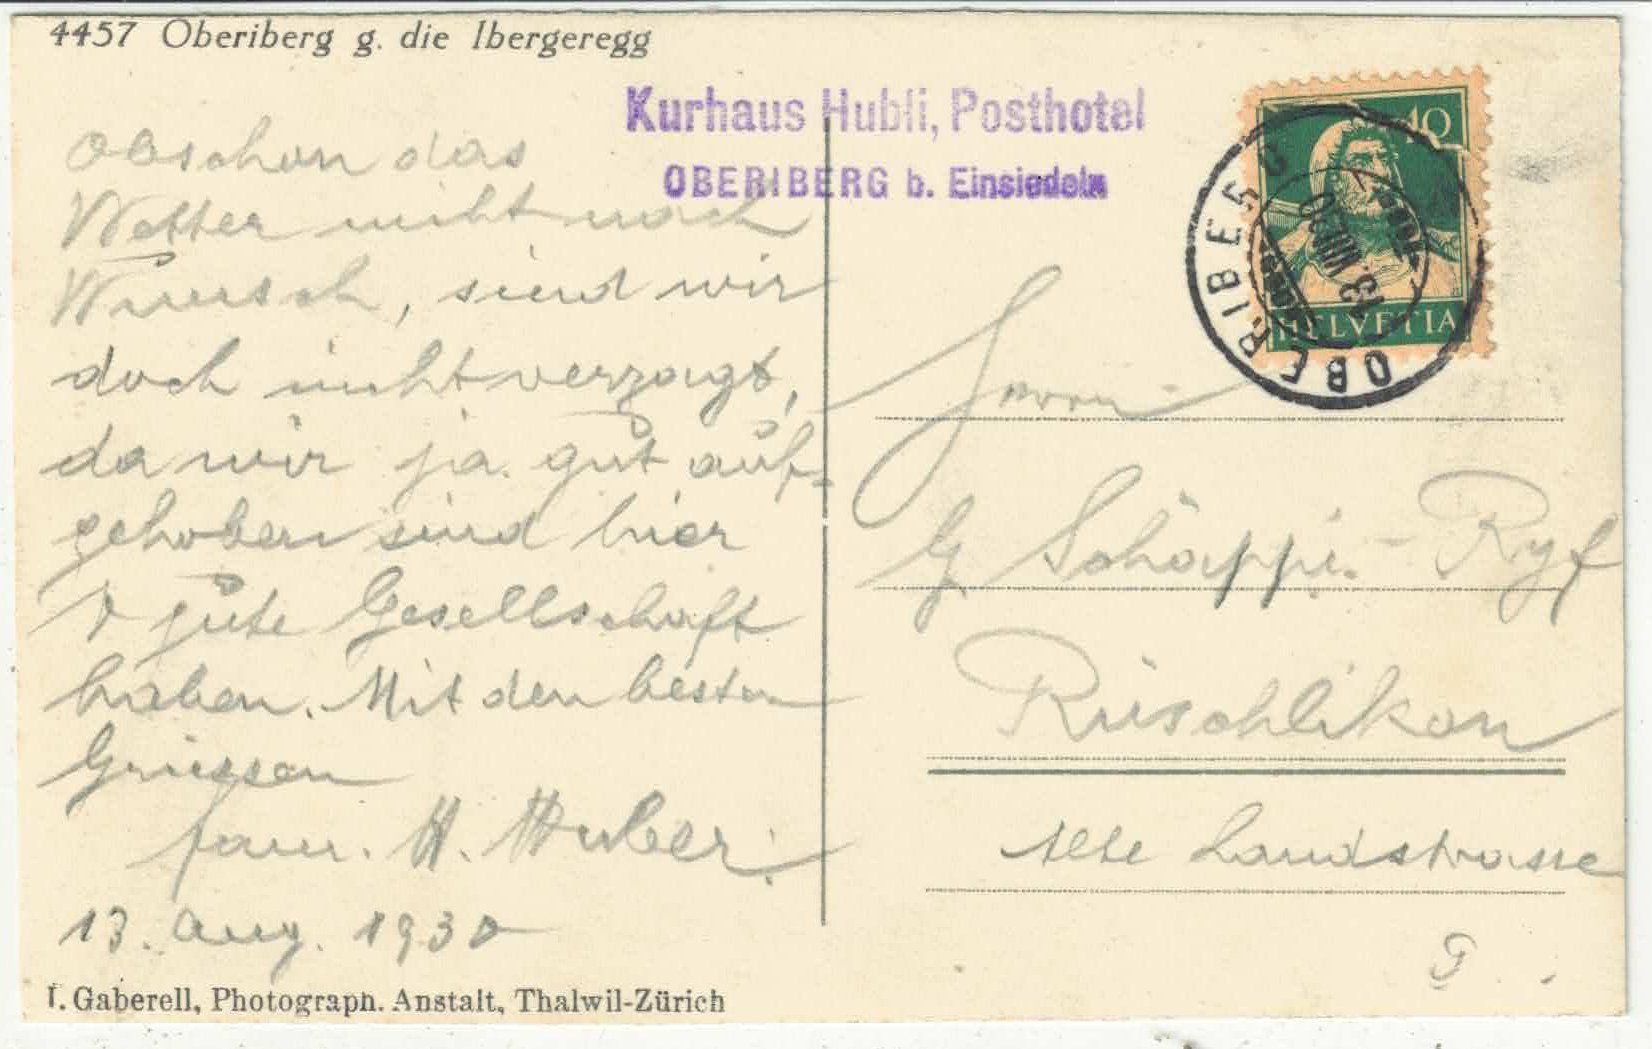 4457 Oberiberg g. die Ibergeregg
Kurhaus Hubli, Posthotel
OBERIBERG b. Einsiedeln
10
HELVETIA
OBERIBERG
13. VIII. 30
Obschon das
Wetter nicht nach
Wunsch, sind wir
doch nicht verzagt,
da wir ja gut auf-
gehoben sind hier
& gute Gesellschaft
haben. Mit den besten
Grüssen
fam. H. Huber.
13. Aug. 1930
I. Gaberell, Photograph. Anstalt, Thalwil-Zürich
Schäppi-Ryf
Rüschlikon
alte Landstrasse